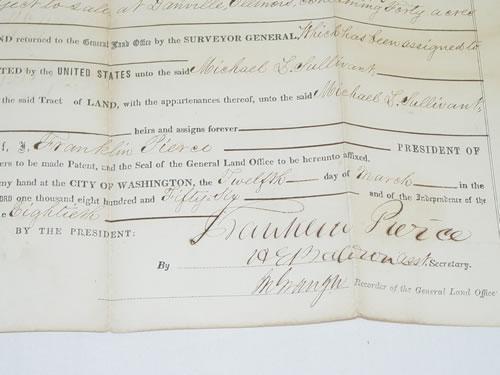 ject to sale at Danville, Illinois, containing Forty acre
ND returned to the General Land Office by the SURVEYOR GENERAL, Which has been assigned to
TED by the UNITED STATES unto the said Michael L. Sullivant
the said Tract of LAND, with the appurtenances thereof, unto the said Michael L. Sullivant,
heirs and assigns forever
I, Franklin Pierce PRESIDENT OF
ers to be made Patent, and the Seal of the General Land Office to be hereunto affixed.
my hand at the CITY OF WASHINGTON, the Twelfth day of March in the
ORD one thousand eight hundred and Fifty Six and of the Independence of the
e Eightieth
BY THE PRESIDENT: Franklin Pierce
By H E Baldwin asst. Secretary.
Recorder of the General Land Office